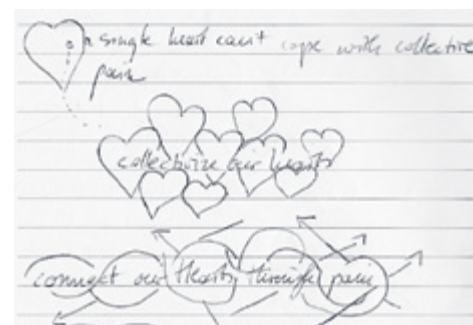 a single heart can't cope with collective
pain
collectivize our hearts
connect our hearts through pain